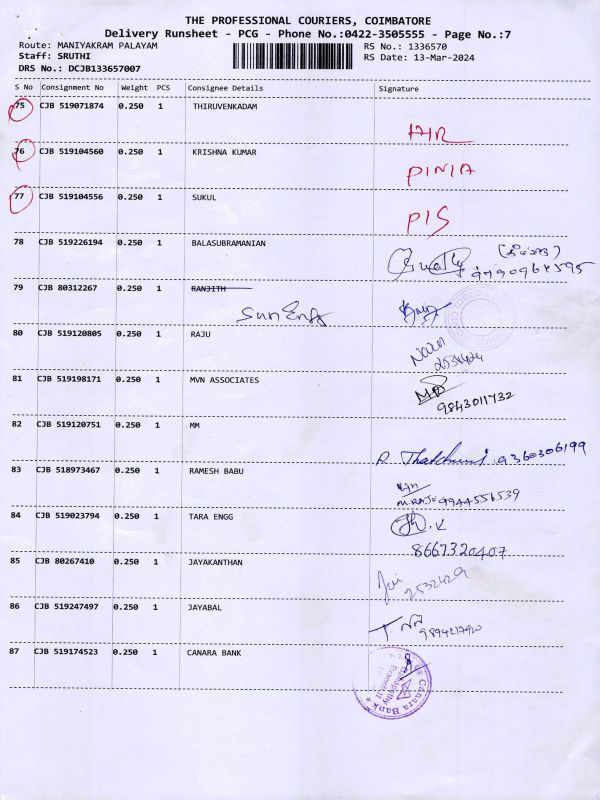 THE PROFESSIONAL COURIERS, COIMBATORE
Delivery Runsheet - PCG - Phone No.:0422-3505555 - Page No.:7
Route: MANIYAKRAM PALAYAM RS No.: 1336570
Staff: SRUTHI RS Date: 13-Mar-2024
DRS No.: DCJB133657007
S No Consignment No Weight PCS Consignee Details Signature
75 CJB 519071874 0.250 1 THIRUVENKADAM
76 CJB 519104560 0.250 1 KRISHNA KUMAR
77 CJB 519104556 0.250 1 SUKUL
P/S
78 CJB 519226194 0.250 1 BALASUBRAMANIAN
79 CJB 80312267 0.250 1 RANJITH
Sun Engg
80 CJB 519120805 0.250 1 RAJU
81 CJB 519198171 0.250 1 MVN ASSOCIATES
9843011732
82 CJB 519120751 0.250 1 MM
9360306199
83 CJB 518973467 0.250 1 RAMESH BABU
M.RAJU 9944556539
84 CJB 519023794 0.250 1 TARA ENGG
8667320407
85 CJB 80267410 0.250 1 JAYAKANTHAN
2532429
86 CJB 519247497 0.250 1 JAYABAL
87 CJB 519174523 0.250 1 CANARA BANK
Canara Bank